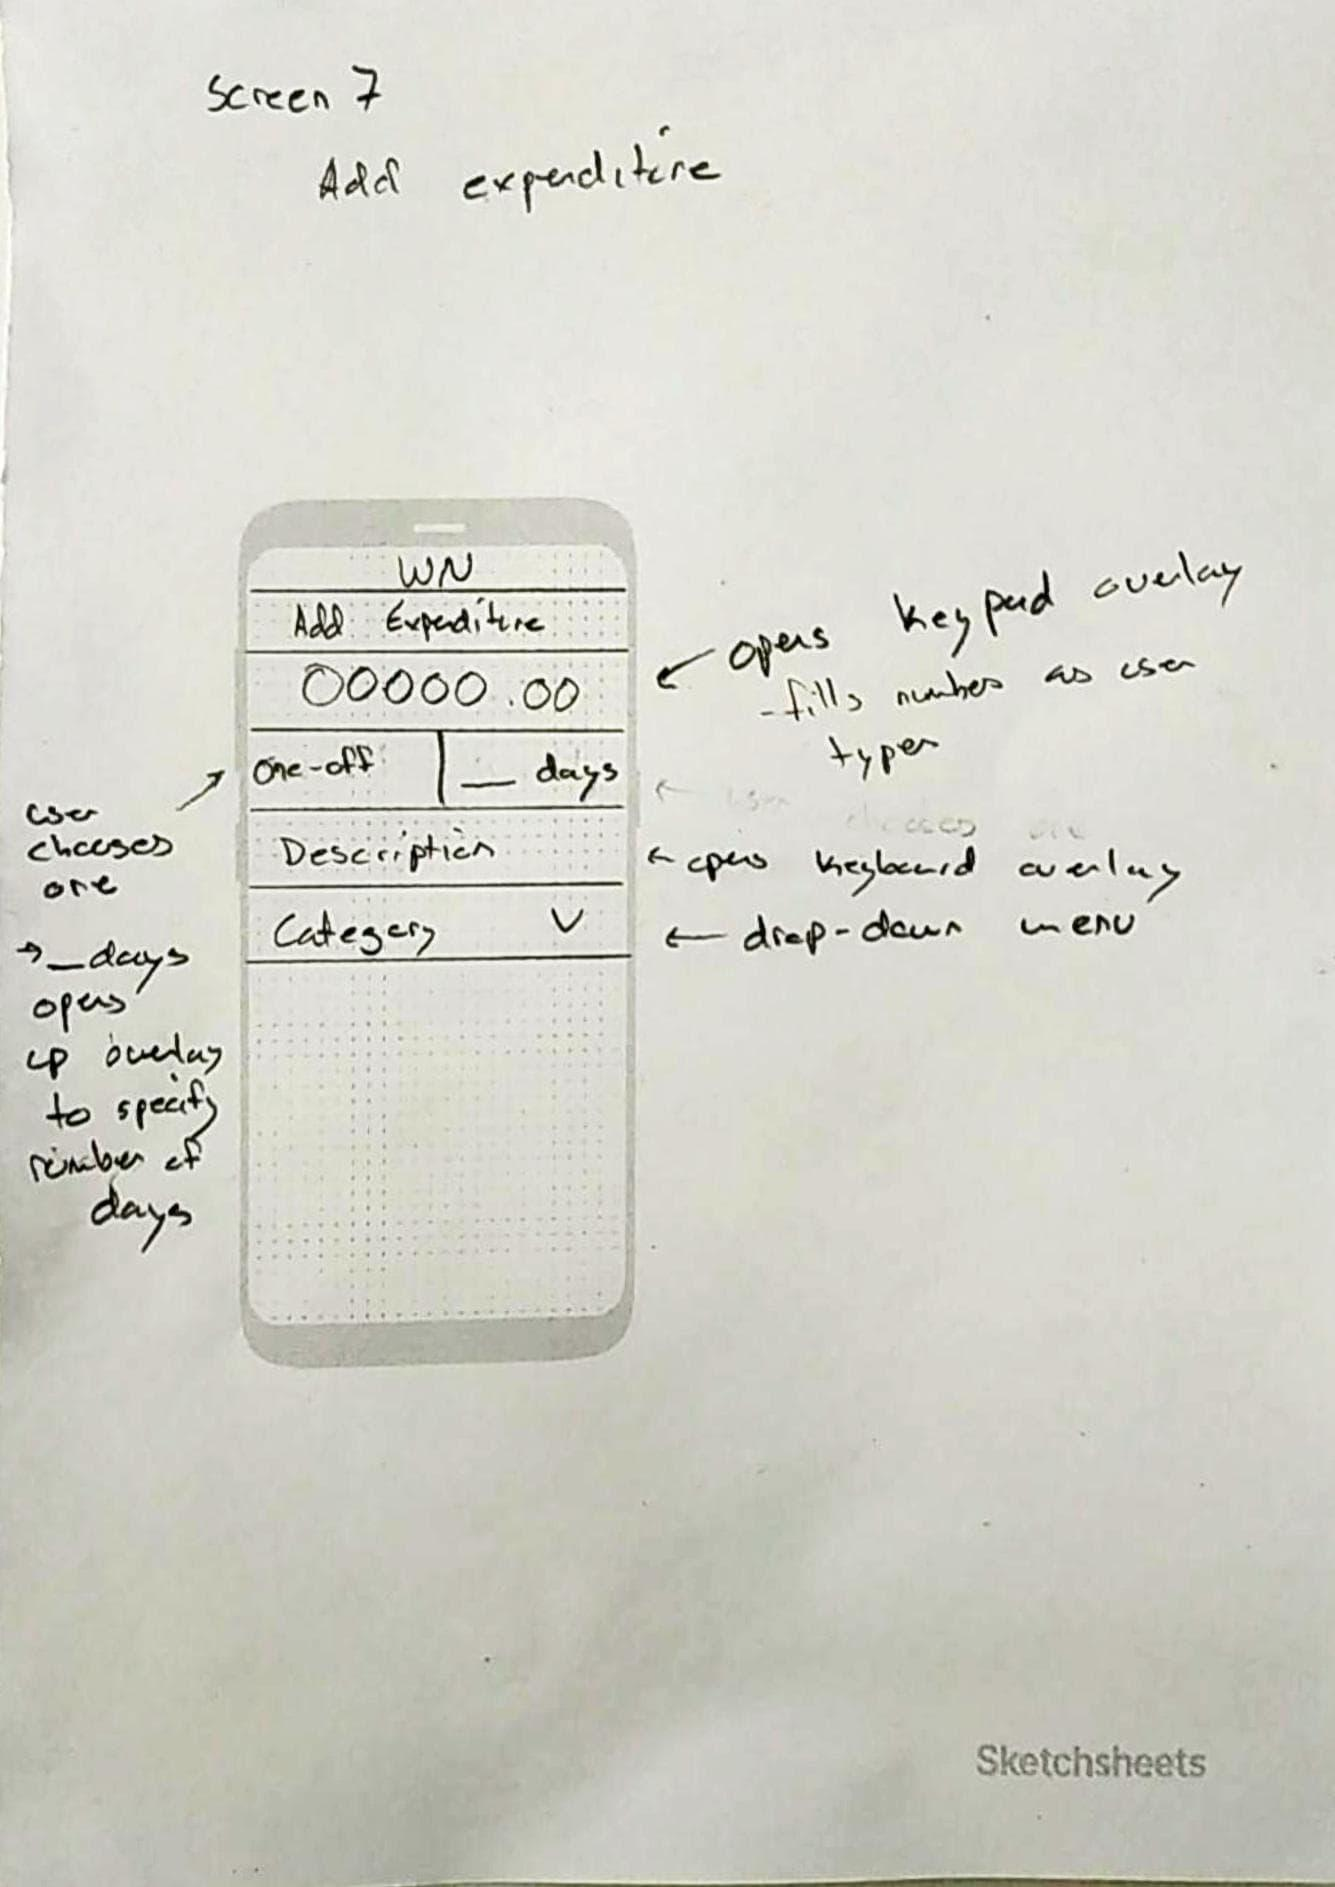 Screen 7
Add expenditure
WN
Add Expenditure
00000.00
One-off
__ days
Description
Category
← opens keypad overlay
- fills number as user
types
← user
chooses one
← opens keyboard overlay
← drop-down menu
user
chooses
one
→ __ days
opens
up overlay
to specify
number of
days
Sketchsheets